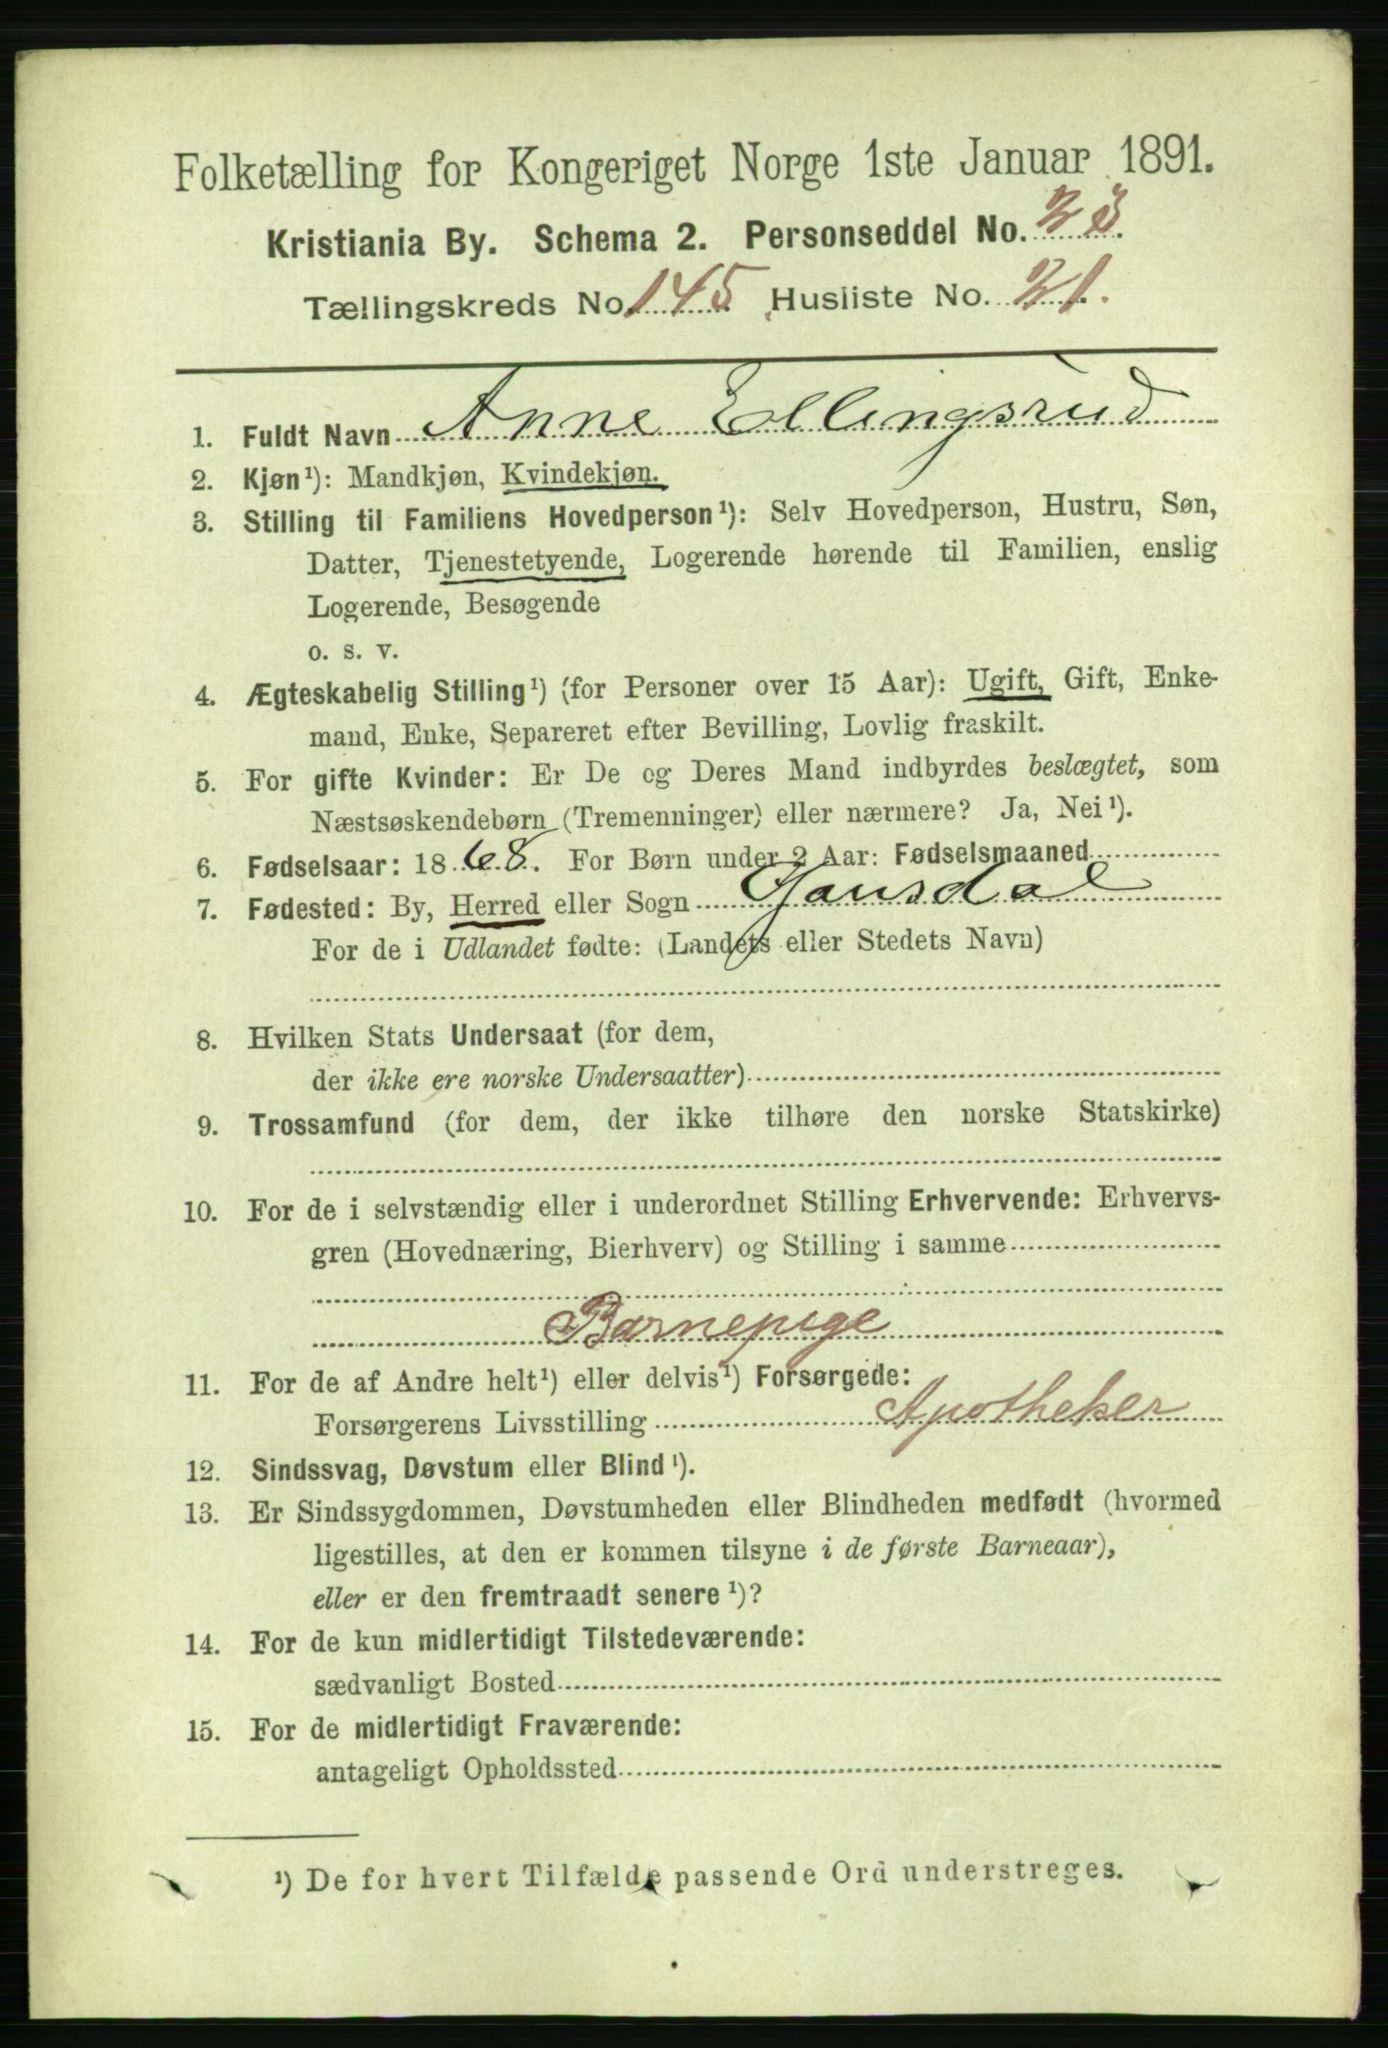 Folketælling for Kongeriget Norge 1ste Januar 1891.
Kristiania By. Schema 2. Personseddel No. 23.
Tællingskreds No. 145 Husliste No. 21.
1. Fuldt Navn Anne Ellingsrud
2. Kjøn¹): Mandkjøn, Kvindekjøn.
3. Stilling til Familiens Hovedperson¹): Selv Hovedperson, Hustru, Søn,
Datter, Tjenestetyende, Logerende hørende til Familien, enslig
Logerende, Besøgende
o. s. v.
4. Ægteskabelig Stilling¹) (for Personer over 15 Aar): Ugift, Gift, Enke-
mand, Enke, Separeret efter Bevilling, Lovlig fraskilt.
5. For gifte Kvinder: Er De og Deres Mand indbyrdes beslægtet, som
Næstsøskendebørn (Tremenninger) eller nærmere? Ja, Nei¹).
6. Fødselsaar: 1868. For Børn under 2 Aar: Fødselsmaaned
7. Fødested: By, Herred eller Sogn Gausdal
For de i Udlandet fødte: (Landets eller Stedets Navn)
8. Hvilken Stats Undersaat (for dem,
der ikke ere norske Undersaatter)
9. Trossamfund (for dem, der ikke tilhøre den norske Statskirke)
10. For de i selvstændig eller i underordnet Stilling Erhvervende: Erhvervs-
gren (Hovednæring, Bierhverv) og Stilling i samme
Barnepige
11. For de af Andre helt¹) eller delvis¹) Forsørgede:
Forsørgerens Livsstilling Apotheker
12. Sindssvag, Døvstum eller Blind¹).
13. Er Sindssygdommen, Døvstumheden eller Blindheden medfødt (hvormed
ligestilles, at den er kommen tilsyne i de første Barneaar),
eller er den fremtraadt senere¹)?
14. For de kun midlertidigt Tilstedeværende:
sædvanligt Bosted
15. For de midlertidigt Fraværende:
antageligt Opholdssted
¹) De for hvert Tilfælde passende Ord understreges.